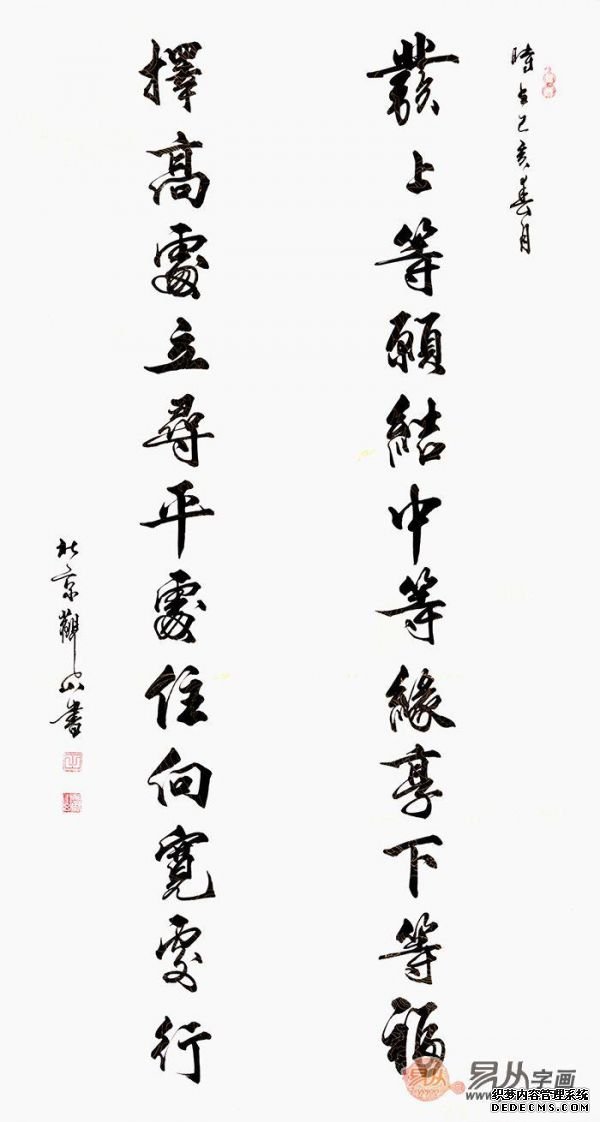 時在己亥春月
發上等願結中等緣享下等福
擇高處立尋平處住向寬處行
北京觀山書
易从
易从字画
www.
织梦内容管理系统
DEDECMS.COM